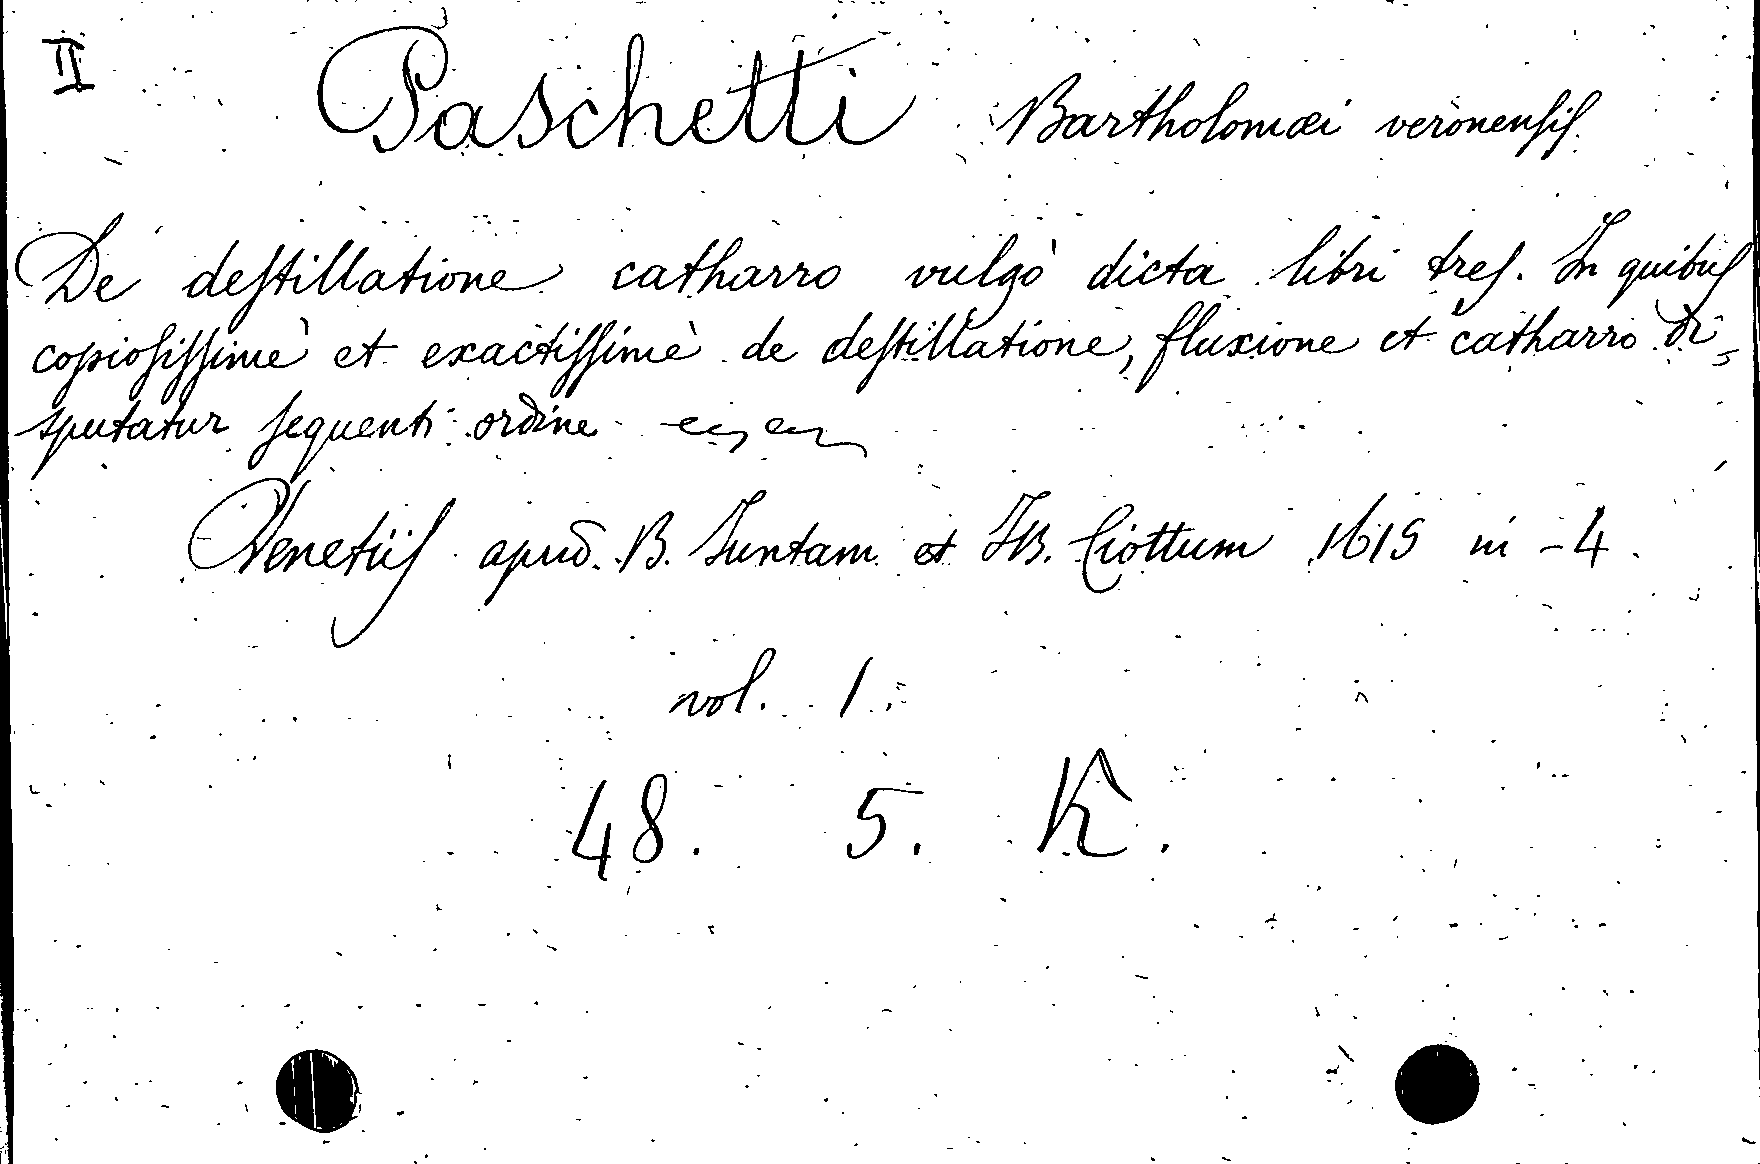 II
Paschetti Bartholomæi veronensis.
De destillatione catharro vulgò dicta libri tres. In quibus
copiosissimè et exactissimè de destillatione, fluxione et catharro di-
sputatur sequenti ordine
Venetiis apud. B. Juntam et JB. Ciottum 1615 in -4.
vol. 1.
48. 5. K.